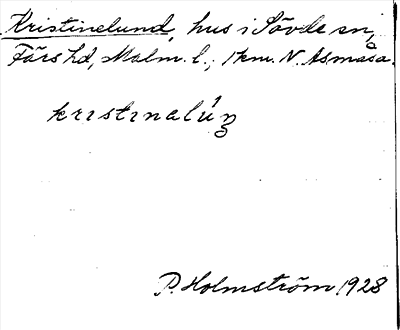 Kristinelund, hus i Sövde sn,
Färs hd, Malm. l., 1 km. N. Åsmåsa.
kristinalúŋ
P. Holmström 1928